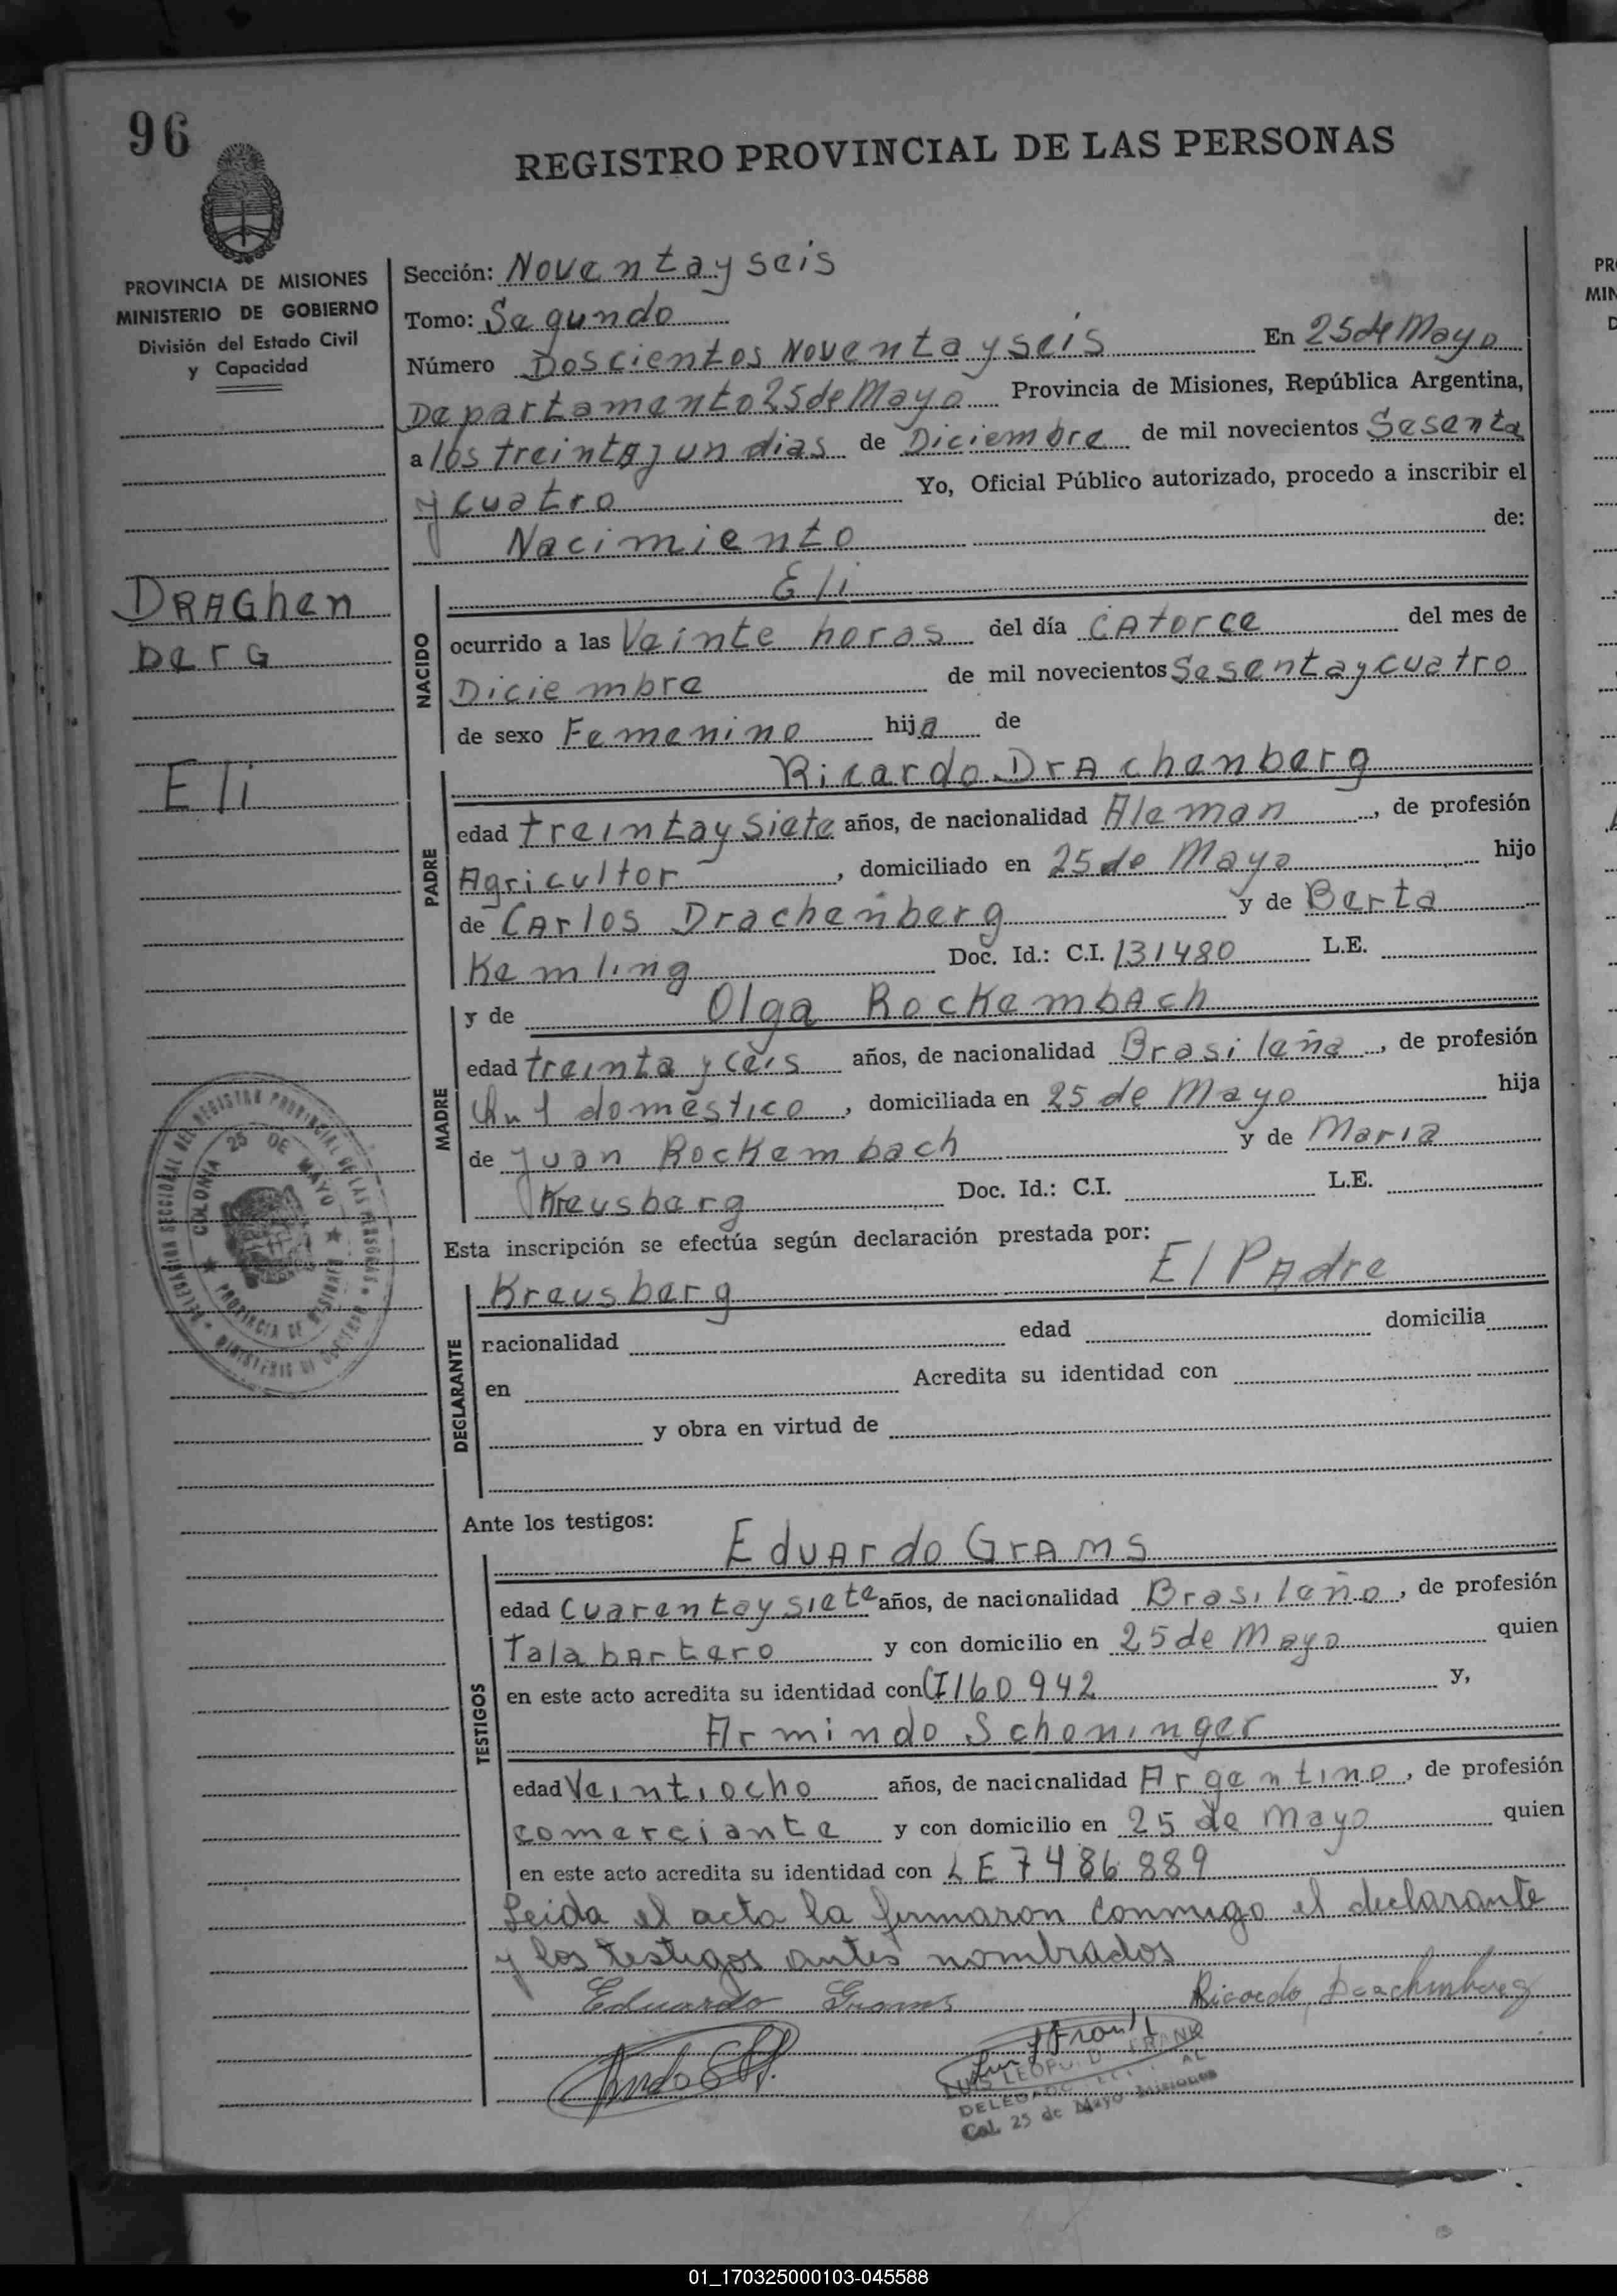 96
REGISTRO PROVINCIAL DE LAS PERSONAS
PROVINCIA DE MISIONES
MINISTERIO DE GOBIERNO
División del Estado Civil
y Capacidad
DRAGhen
berG
Eli
Sección: Noventa y seis
Tomo: Segundo
Número Doscientos Noventa y seis En 25 de Mayo
Departamento 25 de Mayo Provincia de Misiones, República Argentina,
a los treinta y un dias de Diciembre de mil novecientos Sesenta
y cuatro Yo, Oficial Público autorizado, procedo a inscribir el
Nacimiento de:
NACIDO
Eli
ocurrido a las Veinte horas del día CAtorce del mes de
Diciembre de mil novecientos Sesenta y cuatro
de sexo Femenino hija de
PADRE
Ricardo DrAchenberg
edad treinta y siete años, de nacionalidad Aleman, de profesión
Agricultor, domiciliado en 25 de Mayo hijo
de CArlos Drachenberg y de Berta
Kemling Doc. Id.: C.I. 131480 L.E.
MADRE
y de Olga RocKembAch
edad treinta y ceis años, de nacionalidad Brasileña, de profesión
doméstico, domiciliada en 25 de Mayo hija
de Juan RocKembach y de Maria
Kreusberg Doc. Id.: C.I. L.E.
Esta inscripción se efectúa según declaración prestada por:
DECLARANTE
Kreusberg El PAdre
nacionalidad edad domicilia
en Acredita su identidad con
y obra en virtud de
Ante los testigos:
TESTIGOS
EduArdo GrAms
edad cuarenta y siete años, de nacionalidad Brasileño, de profesión
Talabartero y con domicilio en 25 de Mayo quien
en este acto acredita su identidad con CI 160942 y,
Armindo Schoninger
edad Veintiocho años, de nacionalidad Argentino, de profesión
comerciante y con domicilio en 25 de Mayo quien
en este acto acredita su identidad con LE 7486889
Leida el acta la firmaron conmigo el declarante
y los testigos antes nombrados
Eduardo Grams Ricardo Drachenberg
LUIS LEOPOLDO FRANK
DELEGADO
Col. 25 de Mayo Misiones
COLONIA 25 DE MAYO
PROVINCIA DE MISIONES
01_170325000103-045588